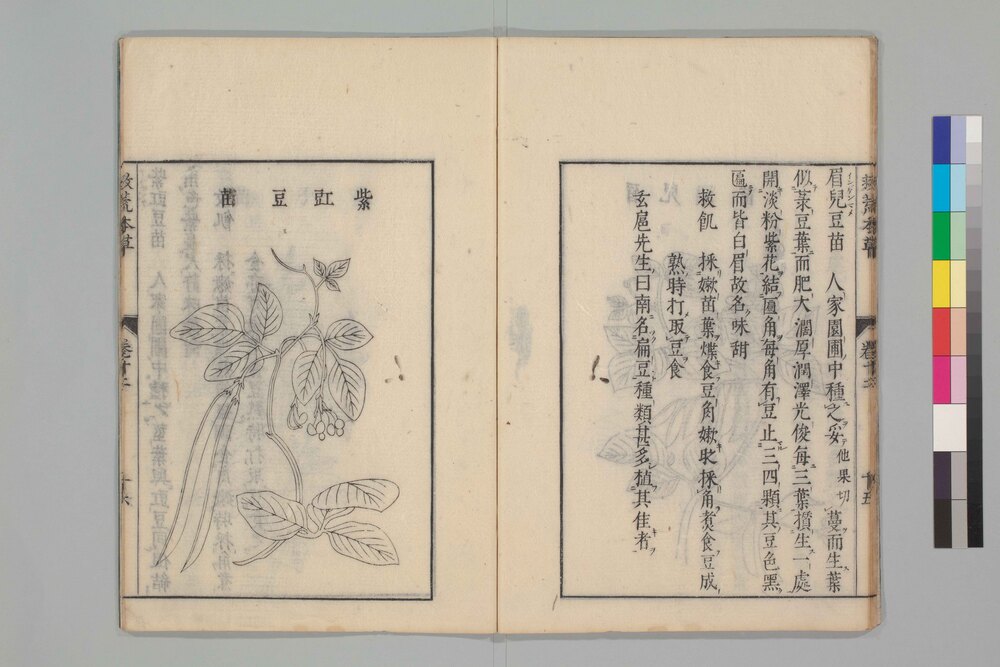 眉兒豆苗　人家園圃中種之妥他果切蔓而生葉
似菉豆葉而肥大濶厚潤澤光俊每三葉攢生一處
開淡粉紫花結匾角每角有豆止三四顆其豆色黑
匾而皆白眉故名味甜
救飢　採嫩苗葉煠食豆角嫩時採角煑食豆成
熟時打取豆食
玄扈先生曰南名扁豆種類甚多植其佳者
救荒本草
卷十二
十五
紫豇豆苗
救荒本草
卷十二
十六